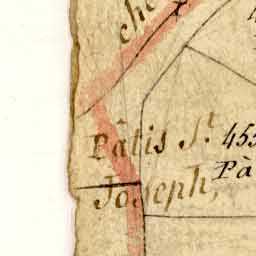 che
Pâtis St. 455
Pâ
Joseph,